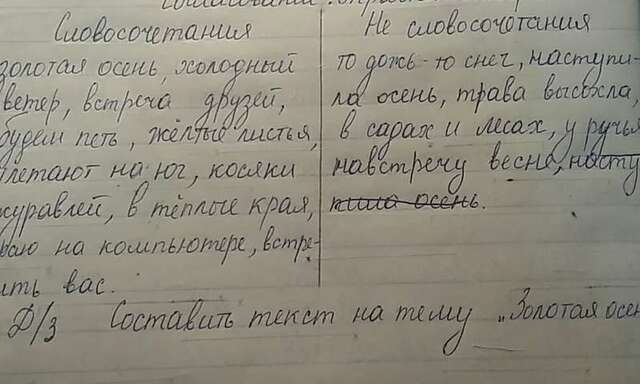 Словосочетания
золотая осень, холодный
ветер, встреча друзей,
будем петь, жёлтые листья,
летают на юг, косяки
журавлей, в тёплые края,
на компьютере, встре-
ить вас.
Не словосочетания
то дожь-то снег, наступи-
ла осень, трава высохла,
в садах и лесах, у ручья
навстречу весне, насту
пила осень.
Д/з Составить текст на тему „Золотая осен